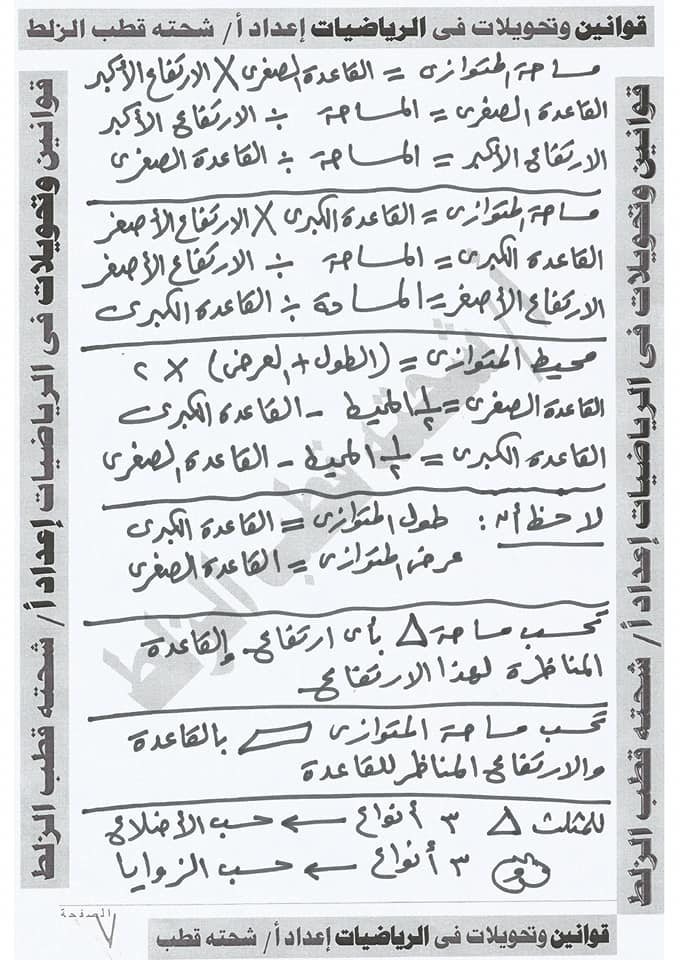 قوانين وتحويلات فى الرياضيات إعداد أ/ شحته قطب الزلط
مساحة المتوازى = القاعدة الصغرى X الارتفاع الأكبر
القاعدة الصغرى = المساحة ÷ الارتفاع الأكبر
الارتفاع الأكبر = المساحة ÷ القاعدة الصغرى
مساحة المتوازى = القاعدة الكبرى X الارتفاع الأصغر
القاعدة الكبرى = المساحة ÷ الارتفاع الأصغر
الارتفاع الأصغر = المساحة ÷ القاعدة الكبرى
محيط المتوازى = (الطول + العرض) X ٢
القاعدة الصغرى = ١/٢ المحيط - القاعدة الكبرى
القاعدة الكبرى = ١/٢ المحيط - القاعدة الصغرى
لاحظ أنه : طول المتوازى = القاعدة الكبرى
عرض المتوازى = القاعدة الصغرى
تحسب مساحة △ بأى ارتفاع والقاعدة
المناظرة لهذا الارتفاع
تحسب مساحة المتوازى ▱ بالقاعدة
والارتفاع المناظر للقاعدة
للمثلث △ ٣ أنواع ← حسب الأضلاع
و ٣ أنواع ← حسب الزوايا
الصفحة ٧
قوانين وتحويلات فى الرياضيات إعداد أ/ شحته قطب
قوانين وتحويلات فى الرياضيات إعداد أ/ شحته قطب الزلط
قوانين وتحويلات فى الرياضيات إعداد أ/ شحته قطب الزلط
أ/ شحته قطب الزلط